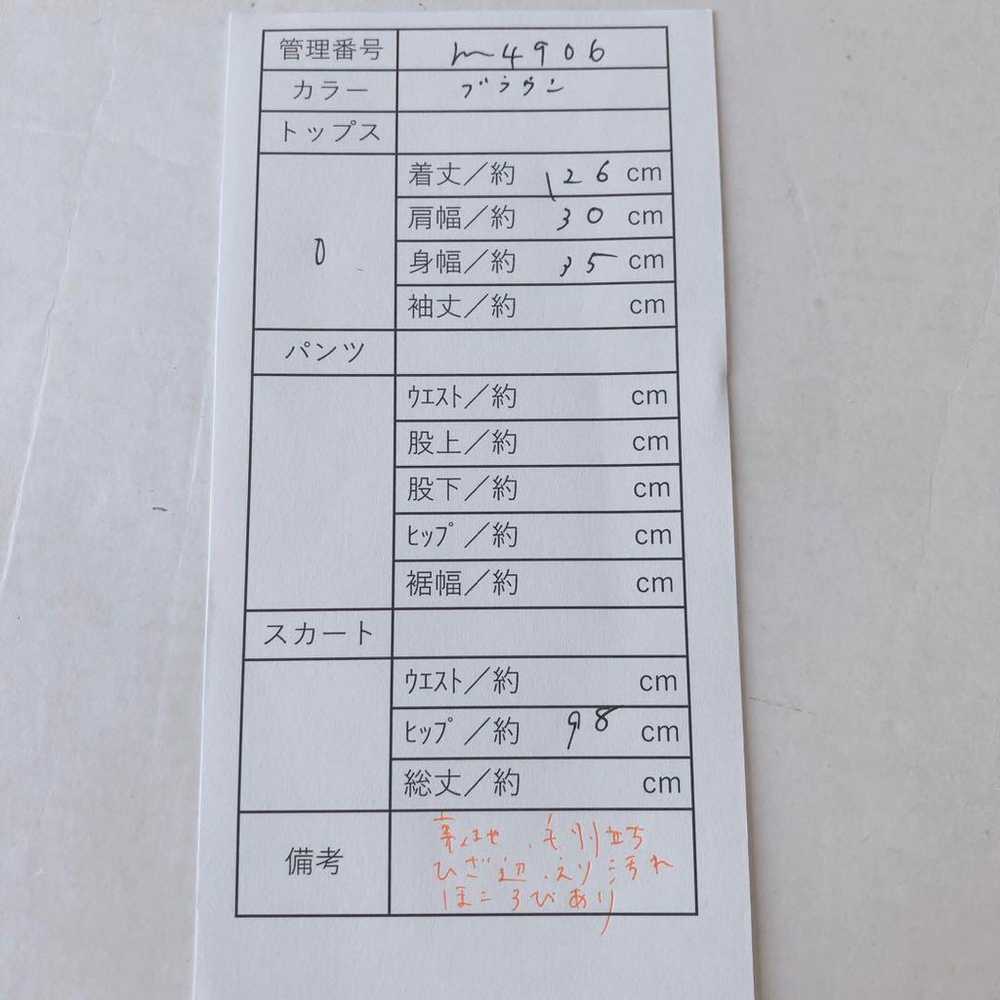 管理番号 m4906
カラー ブラウン
トップス
0
着丈／約 126 cm
肩幅／約 30 cm
身幅／約 35 cm
袖丈／約 cm
パンツ
ｳｴｽﾄ／約 cm
股上／約 cm
股下／約 cm
ﾋｯﾌﾟ／約 cm
裾幅／約 cm
スカート
ｳｴｽﾄ／約 cm
ﾋｯﾌﾟ／約 98 cm
総丈／約 cm
備考
毛羽立ち
ひざ辺、えり汚れ
ほころびあり